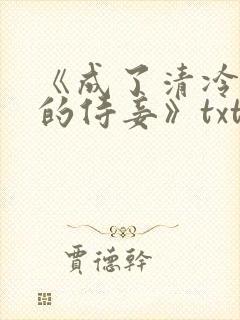 《成了清冷
的侍妾》txt
賈德幹